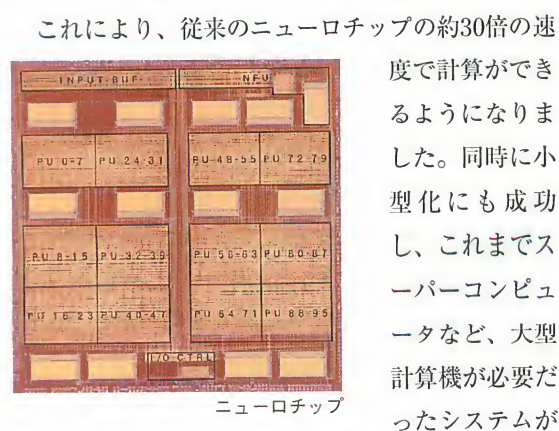 これにより、従来のニューロチップの約30倍の速
度で計算ができ
るようになりま
した。同時に小
型化にも成功
し、これまでス
ーパーコンピュ
ータなど、大型
計算機が必要だ
ったシステムが
INPUT-BUF
NFU
PU 0-7 PU 24-31 PU-48-55 PU 72-79
PU 8-15 PU-32-39 PU 56-63 PU 80-87
PU 16-23 PU 40-47 PU 64-71 PU 88-95
I/O CTRL
ニューロチップ